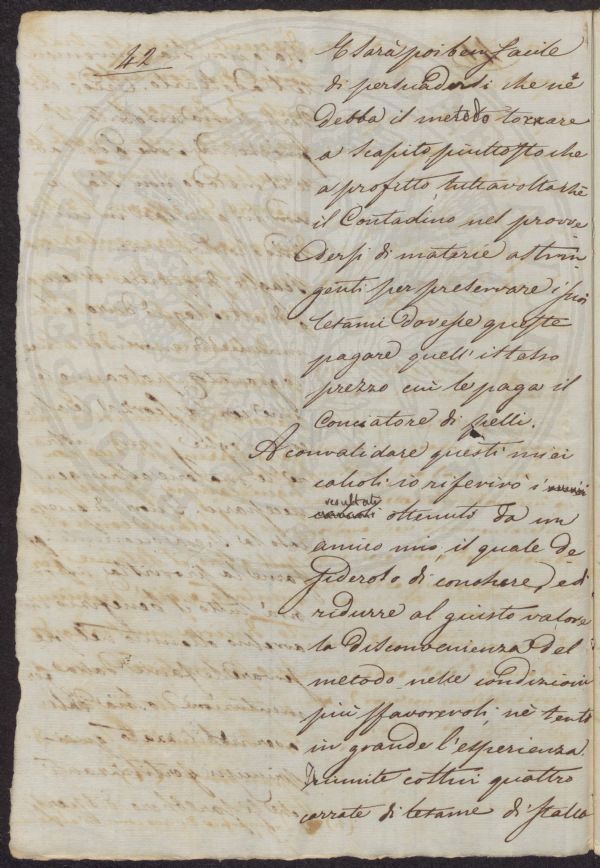 42
E sarà poi ben facile
di persuadersi che ne
debba il metodo tornare
a scapito piuttosto che
a profitto, tuttavolta chè
il Contadino nel provve
dersi di materie astrin
genti per preservare i suoi
letami dovesse queste
pagare quell' istesso
prezzo cui le paga il
Conciatore di pelli.
A convalidare questi miei
calcoli io riferirò i
resultati
ottenuti da un
amico mio, il quale de
sideroso di conoscere, e di
ridurre al giusto valore
la disconvenienza del
metodo nelle condizioni
più sfavorevoli, nè tentò
in grande l'esperienza.
Riunite cottivi quattro
carrate di letame di stalla